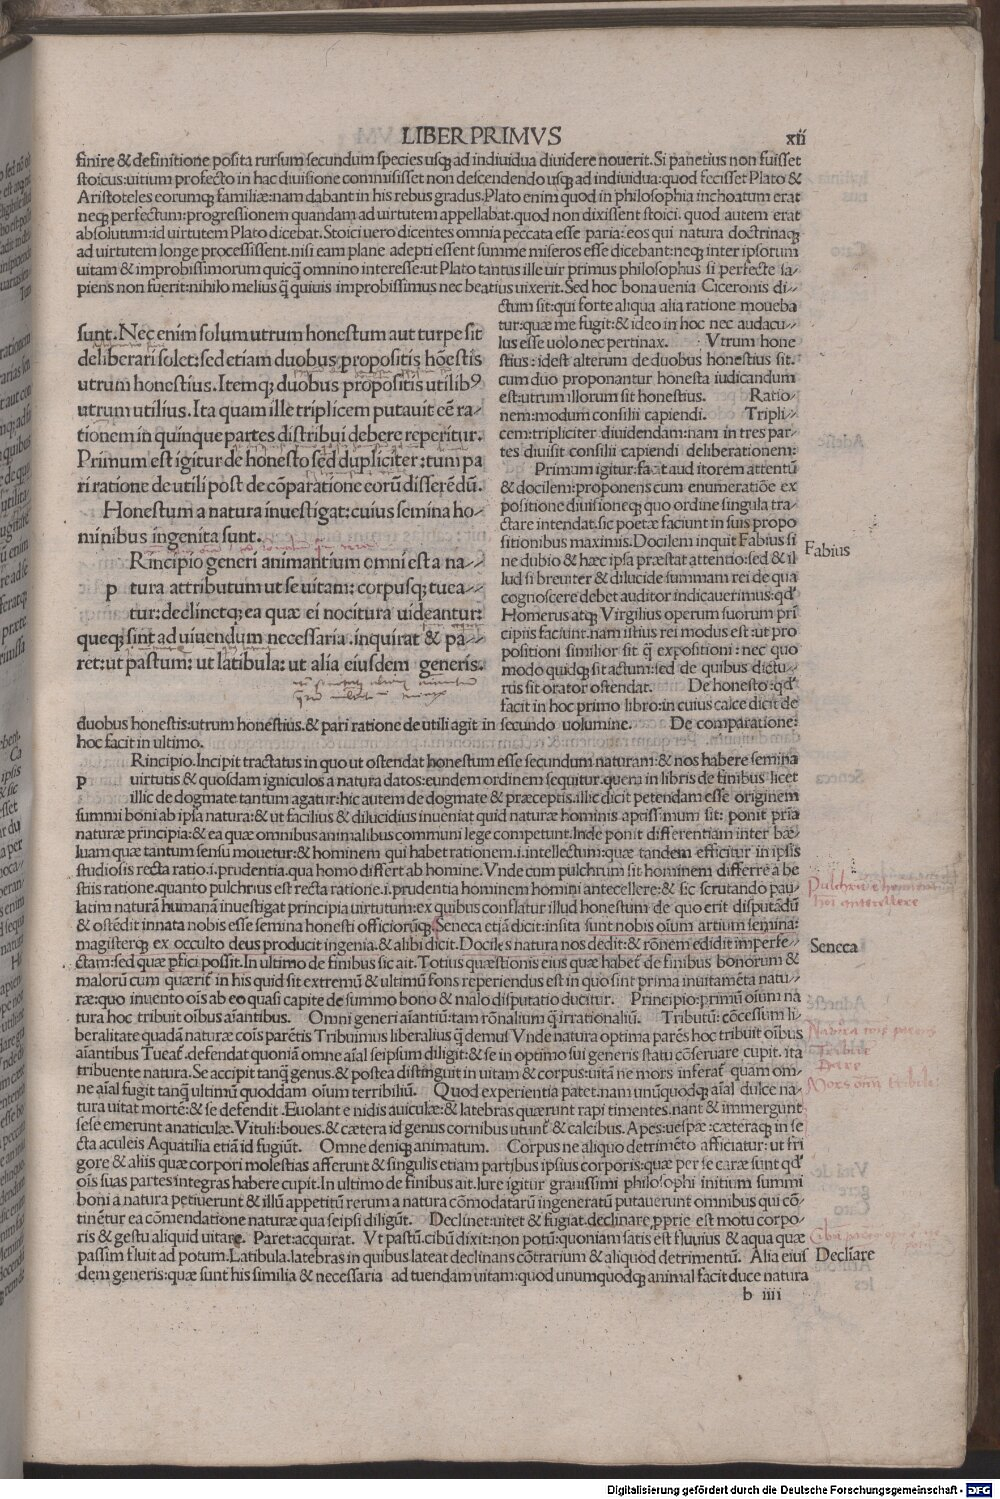 LIBER PRIMVS
xii
finire & definitione posita rursum secundum species usq; ad indiuidua diuidere nouerit. Si panetius non fuisset
stoicus: uitium profecto in hac diuisione commisisset non descendendo usq; ad indiuidua: quod fecisset Plato &
Aristoteles eorumq; familiæ: nam dabant in his rebus gradus. Plato enim quod in philosophia inchoatum erat
neq; perfectum: progressionem quandam ad uirtutem appellabat. quod non dixissent stoici. quod autem erat
absolutum: id uirtutem Plato dicebat. Stoici uero dicentes omnia peccata esse paria: eos qui natura doctrinaq;
ad uirtutem longe processissent. nisi eam plane adepti essent summe miseros esse dicebant: neq; inter ipsorum
uitam & improbissimorum quicq̃ omnino interesse: ut Plato tantus ille uir primus philosophus si perfecte sa-
piens non fuerit: nihilo melius q̃ quiuis improbissimus nec beatius uixerit. Sed hoc bona uenia Ciceronis di-
ctum sit: qui forte aliqua alia ratione moueba
tur: quæ me fugit: & ideo in hoc nec audacu-
lus esse uolo nec pertinax. Vtrum hone
stius: idest alterum de duobus honestius sit.
cum duo proponantur honesta iudicandum
est: utrum illorum sit honestius. Ratio-
nem: modum consilii capiendi. Tripli-
cem: tripliciter diuidendam: nam in tres par-
tes diuisit consilii capiendi deliberationem:
Primum igitur: facit auditorem attentū
& docilem: proponens cum enumeratiōe ex
positione diuisioneq; quo ordine singula tra-
ctare intendat. sic poetæ faciunt in suis propo
sitionibus maximis. Docilem inquit Fabius si
ne dubio & hæc ipsa præstat attentio: sed & il
lud si breuiter & dilucide summam rei de qua
cognoscere debet auditor indicauerimus: qd'
Homerus atq; Virgilius operum suorum pri
cipiis faciunt. nam istius rei modus est: ut pro
positioni similior sit q̃ expositioni: nec quo
modo quidq; sit actum: sed de quibus dictu-
rus sit orator ostendat. De honesto: qd'
facit in hoc primo libro: in cuius calce dicit de
sunt. Nec enim solum utrum honestum aut turpe sit
deliberari solet: sed etiam duobus propositis hōestis
utrum honestius. Itemq; duobus propositis utilibꝰ
utrum utilius. Ita quam ille triplicem putauit eē ra-
tionem in quinque partes distribui debere reperitur.
Primum est igitur de honesto sed dupliciter: tum pa
ri ratione de utili post de cōparatione eorū disserēdū.
Honestum a natura inuestigat: cuius semina ho-
minibus ingenita sunt.
Rincipio generi animantium omni est a na-
p tura attributum ut se uitam: corpusq; tuea-
tur: declinetq; ea quæ ei nocitura uideantur:
queq; sint ad uiuendum necessaria. inquirat & pa-
ret: ut pastum: ut latibula: ut alia eiusdem generis.
Fabius
duobus honestis: utrum honestius. & pari ratione de utili agit in secundo uolumine. De comparatione:
hoc facit in ultimo.
Rincipio. Incipit tractatus in quo ut ostendat honestum esse secundum naturam: & nos habere semina
p uirtutis & quosdam igniculos a natura datos: eundem ordinem sequitur. quem in libris de finibus licet
illic de dogmate tantum agatur: hic autem de dogmate & præceptis. illic dicit petendam esse originem
summi boni ab ipsa natura: & ut facilius & dilucidius inueniat quid naturæ hominis aptissimum sit: ponit pria
naturæ principia: & ea quæ omnibus animalibus communi lege competunt. Inde ponit differentiam inter bæ-
luam quæ tantum sensu mouetur: & hominem qui habet rationem .i. intellectum: quæ tandem efficitur in ipsis
studiosis recta ratio .i. prudentia. qua homo differt ab homine. Vnde cum pulchrum sit hominem differre a be
stiis ratione. quanto pulchrius est recta ratione .i. prudentia hominem homini antecellere: & sic scrutando pau
latim naturā humanā inuestigat principia uirtutum: ex quibus conflatur illud honestum de quo erit disputādū
& ostēdit innata nobis esse semina honesti officiorūq; Seneca etiā dicit: insita sunt nobis oīum artium semina:
magisterq; ex occulto deus producit ingenia. & alibi dicit. Dociles natura nos dedit: & rōnem edidit imperfe-
ctam: sed quæ ꝑfici possit. In ultimo de finibus sic ait. Totius quæstionis eius quæ habet̄ de finibus bonorum &
malorū cum quærit̄ in his quid sit extremū & ultimū fons reperiendus est in quo sint prima inuitamēta natu-
ræ: quo inuento oīs ab eo quasi capite de summo bono & malo disputatio ducitur. Principio: primū oīum na
tura hoc tribuit oībus aīantibus. Omni generi aīantiū: tam rōnalium q̃ irrationaliū. Tributū: cōcessum li-
beralitate quadā naturæ cōis parētis Tribuimus liberalius q̃ demus Vnde natura optima parēs hoc tribuit oībus
aīantibus Tueat̄. defendat quoniā omne aīal seipsum diligit: & se in optimo sui generis statu cōseruare cupit. ita
tribuente natura. Se accipit tanq̃ genus. & postea distinguit in uitam & corpus: uitā ne mors inferat̄ quam om-
ne aīal fugit tanq̃ ultimū quoddam oīum terribiliū. Quod experientia patet. nam unūquodq; aīal dulce na-
tura uitat mortē: & se defendit. Euolant e nidis auiculæ: & latebras quærunt rapi timentes. nant & immergunt
sese emerunt anaticulæ. Vituli: boues. & cætera id genus cornibus utunt̄ & calcibus. Apes: uespæ: cæteraq; in se
cta aculeis Aquatilia etiā id fugiūt. Omne deniq; animatum. Corpus ne aliquo detrimēto afficiatur: ut fri
gore & aliis quæ corpori molestias afferunt & singulis etiam partibus ipsius corporis: quæ per se caræ sunt qd'
oīs suas partes integras habere cupit. In ultimo de finibus ait. Iure igitur grauissimi philosophi initium summi
boni a natura petiuerunt & illū appetitū rerum a natura cōmodatarū ingeneratū putauerunt omnibus qui cō-
tinētur ea cōmendatione naturæ qua seipsi diligūt. Declinet: uitet & fugiat. declinare ꝓprie est motu corpo-
ris & gestu aliquid uitare. Paret: acquirat. Vt pastū. cibū dixit: non potū: quoniam satis est fluuius & aqua quæ
passim fluit ad potum. Latibula. latebras in quibus lateat declinans cōtrarium & aliquod detrimentū. Alia eius
dem generis: quæ sunt his similia & necessaria ad tuendam uitam: quod unumquodq; animal facit duce natura
Seneca
Tribuere
Dare
Decliare
b iiii
Digitalisierung gefördert durch die Deutsche Forschungsgemeinschaft - DFG